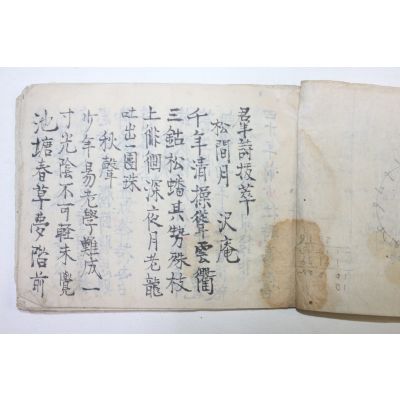 詩抜萃
松間月 沢庵
千年清操聳雲衢
三 松蟠其勢殊枝
上徘徊深夜月老龍
吐出一團珠
秋聲
少年易老學難成一
寸光陰不可軽未覺
池塘春草夢階前